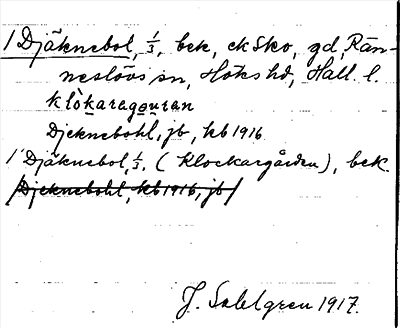 1 Djäknebol, 1/3, bek, ck Sko, gd, Rän-
neslövs sn, Höks hd, Hall. l.
klòkaragouran
Djeknebohl, jb, kb 1916
1 Djäknebol, 1/3. (Klockargården), bek.
/Djeknebohl, kb 1916, jb/
J. Sahlgren 1917.